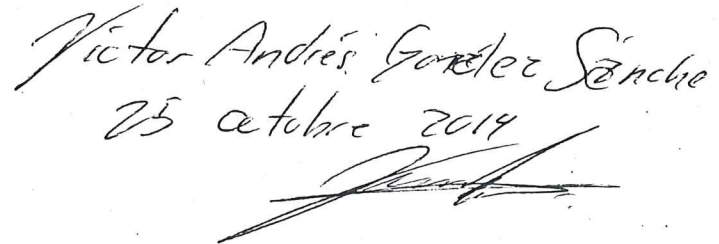 Victor Andrés González Sánche
25 octubre 2014